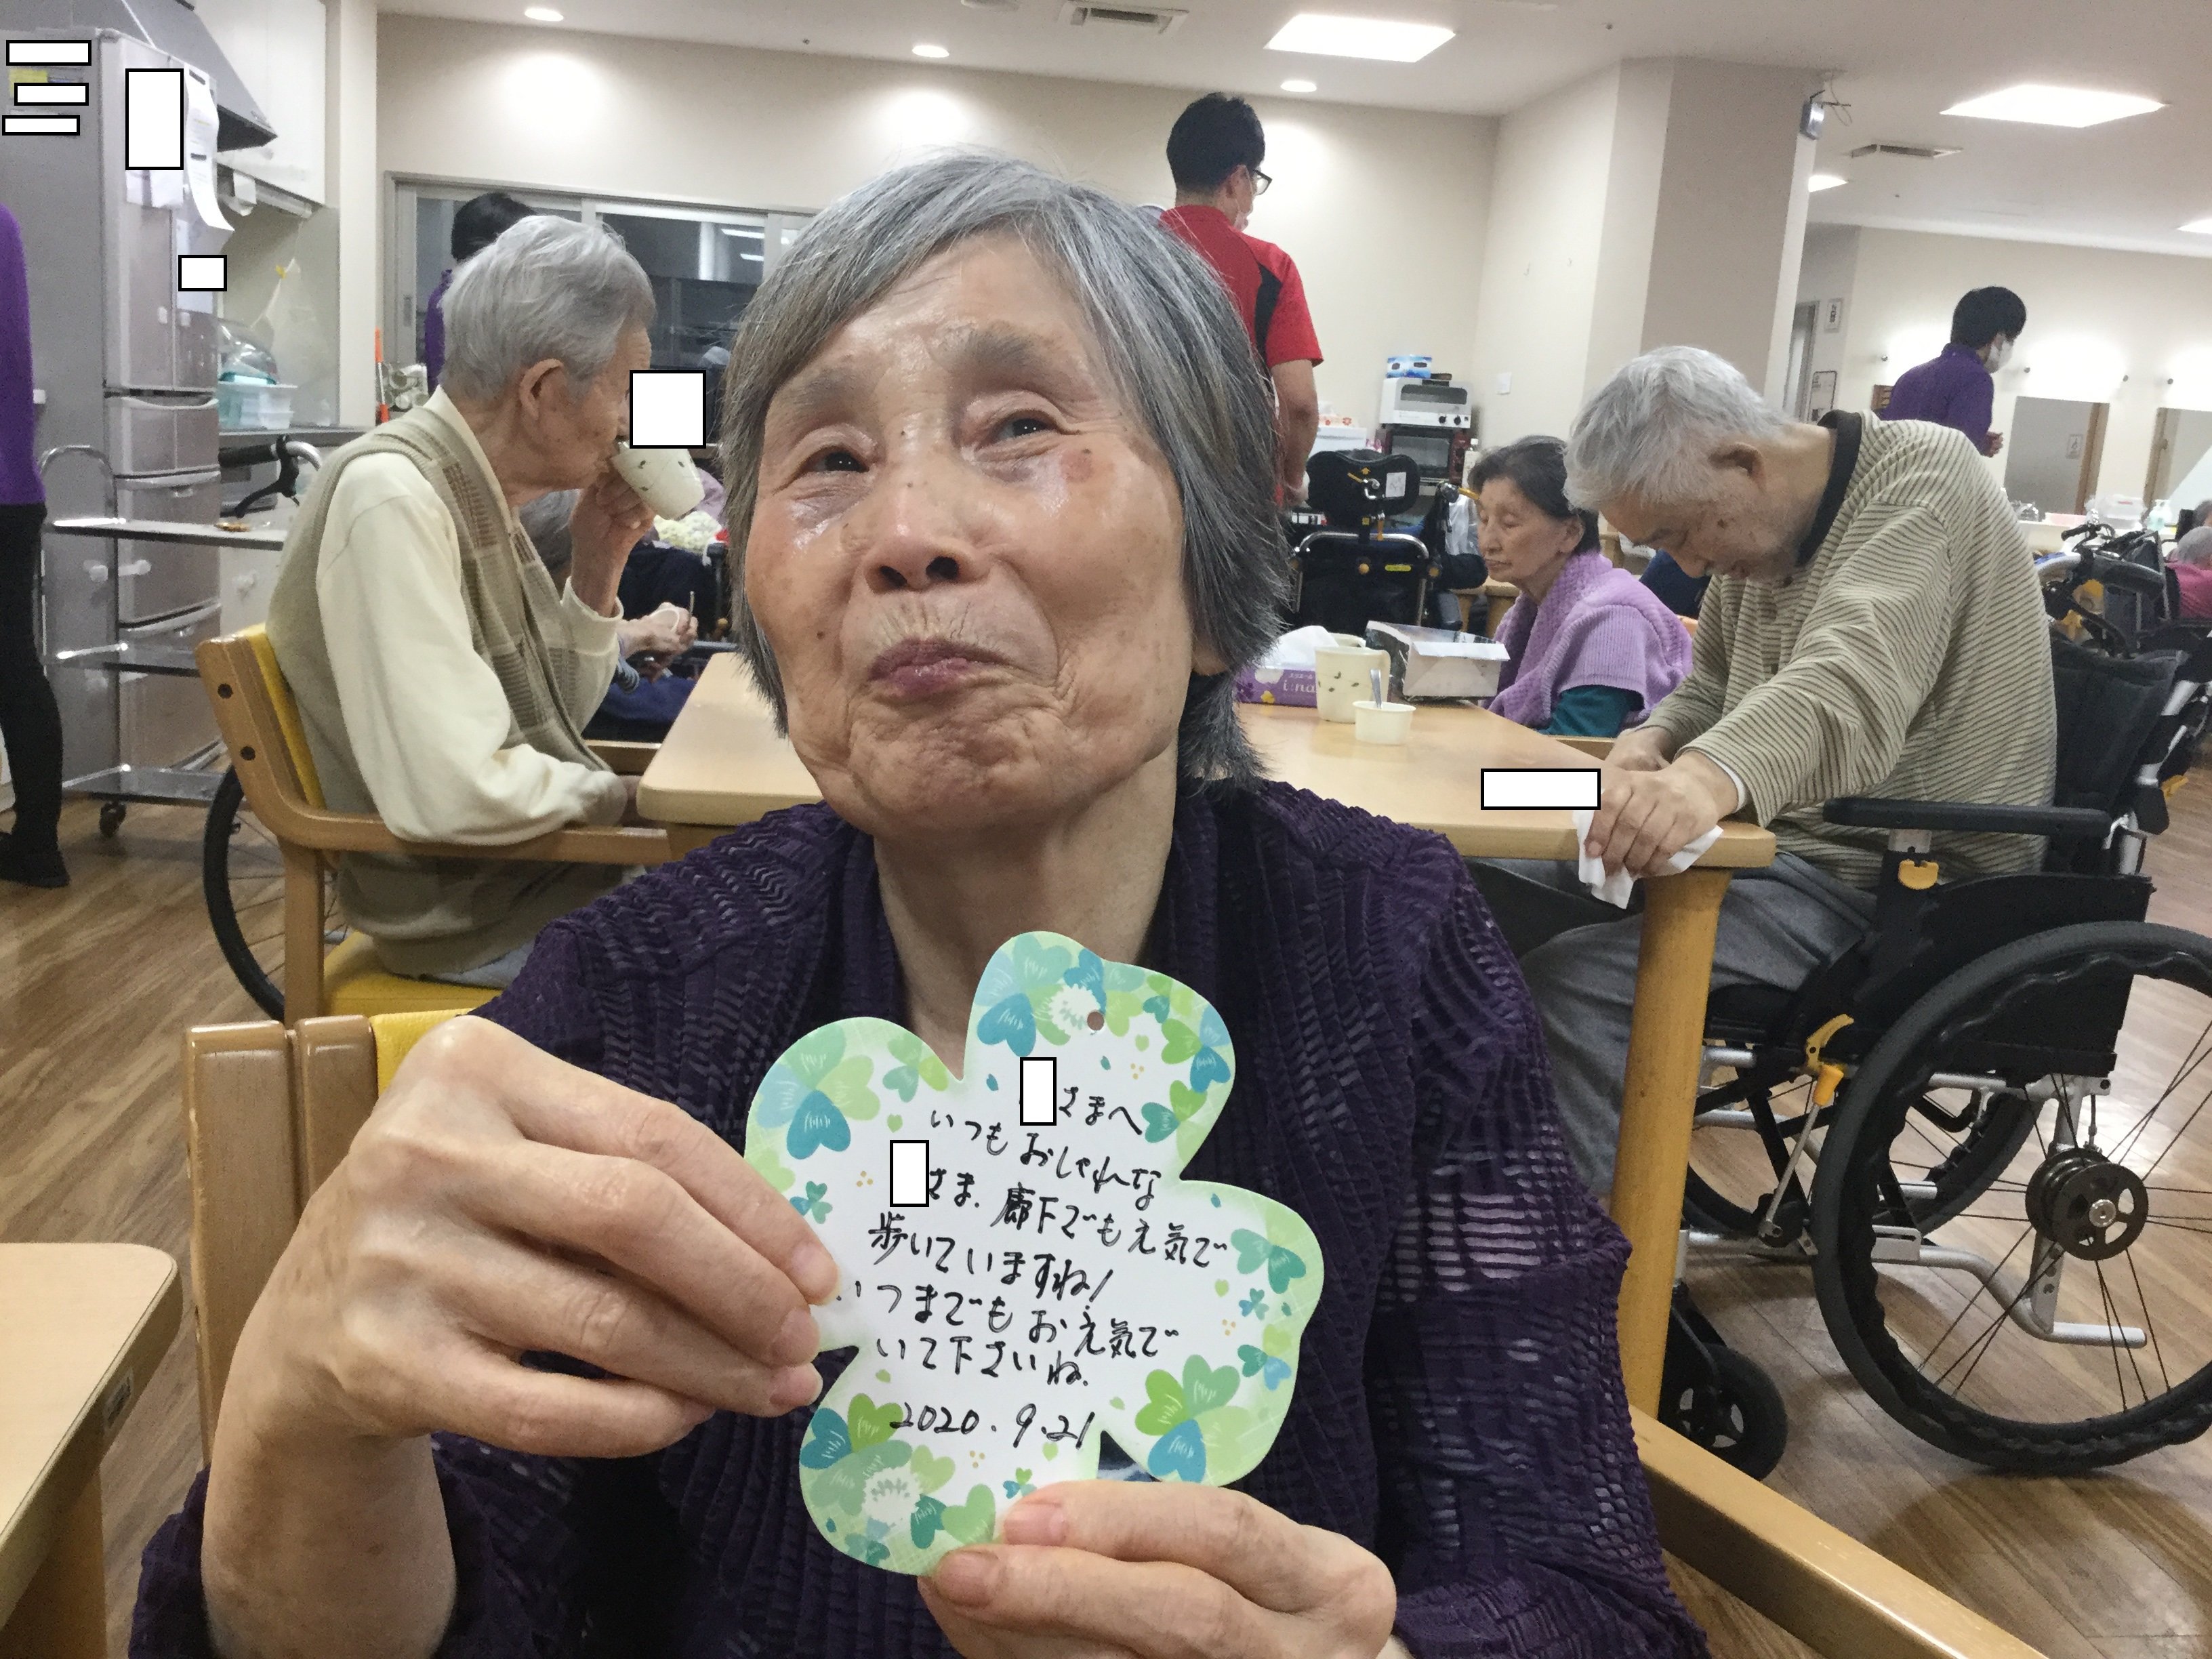 さまへ
いつもおしゃれな
さま、廊下でも元気で
歩いていますね!
いつまでもお元気で
いて下さいね.
2020.9.21
i:na